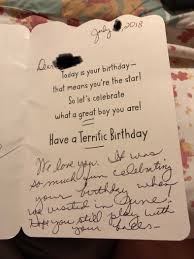 July 2018
Dear
Today is your birthday–
that means you're the star!
So let's celebrate
what a great boy you are!
Have a Terrific Birthday
We love you. It was
so much fun celebrating
your birthday when
we visited in June.
you still play with
your balls–